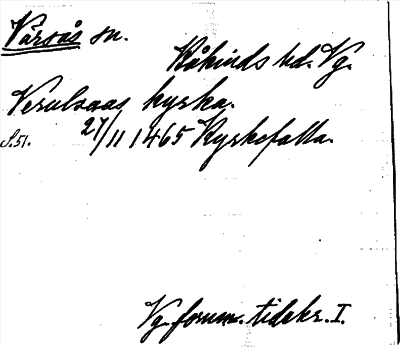 Vårsås sn.
Kåkinds hd. Vg.
Verulsaas kyrka.
S. 51. 27/11 1465 Kyrkefalla.
Vg. fornm. tidskr. I.